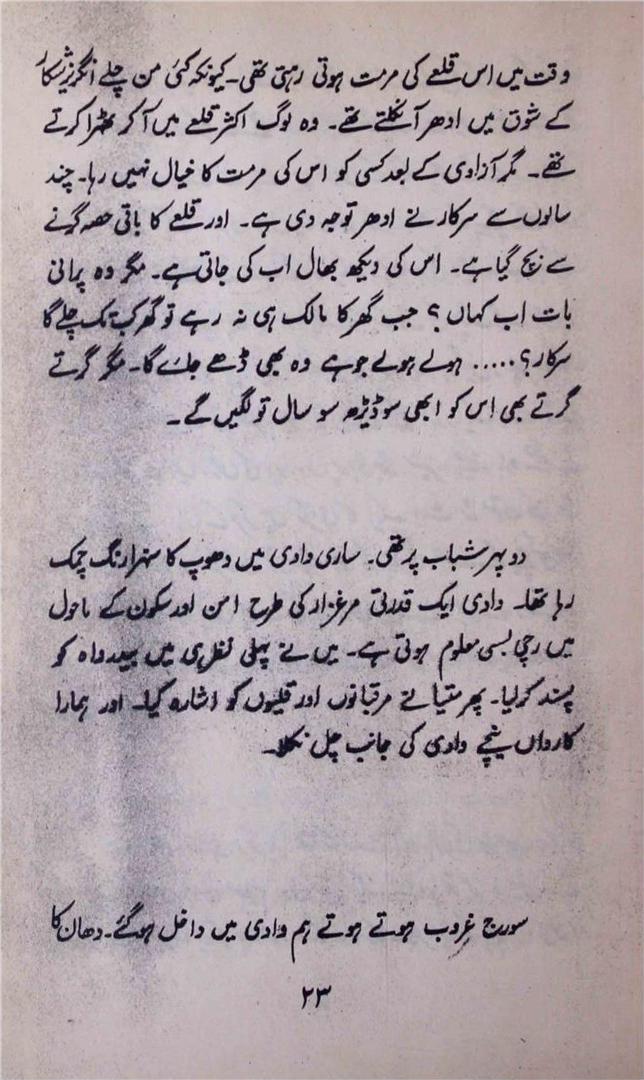 وقت میں اس قلعے کی مرمت ہوتی رہتی تھی۔ کیونکہ کئی من چلے انگریز شکار
کے شوق میں ادھر آنکلتے تھے۔ وہ لوگ اکثر قلعے میں آکر ٹھہرا کرتے
تھے۔ مگر آزادی کے بعد کسی کو اس کی مرمت کا خیال نہیں رہا۔ چند
سالوں سے سرکار نے ادھر توجہ دی ہے۔ اور قلعے کا باقی حصہ گرنے
سے بچ گیا ہے۔ اس کی دیکھ بھال اب کی جاتی ہے۔ مگر وہ پرانی
بات اب کہاں؟ جب گھر کا مالک ہی نہ رہے تو گھر کب تک چلے گا
سرکار؟..... ہولے ہولے جو ہے وہ بھی ڈھے جائے گا۔ مگر گرتے
گرتے بھی اس کو ابھی سو ڈیڑھ سو سال تو لگیں گے۔
دوپہر شباب پر تھی۔ ساری وادی میں دھوپ کا سنہرا رنگ چمک
رہا تھا۔ وادی ایک قدرتی مرغزار کی طرح امن اور سکون کے ماحول
میں رچی بسی معلوم ہوتی ہے۔ میں نے پہلی نظر ہی میں بیدواہ کو
پسند کرلیا۔ پھر متیا نے مرقبانوں اور قلیوں کو اشارہ کیا۔ اور ہمارا
کارواں نیچے وادی کی جانب چل نکلا۔
سورج غروب ہوتے ہوتے ہم وادی میں داخل ہوگئے۔ دھان کا
۲۳